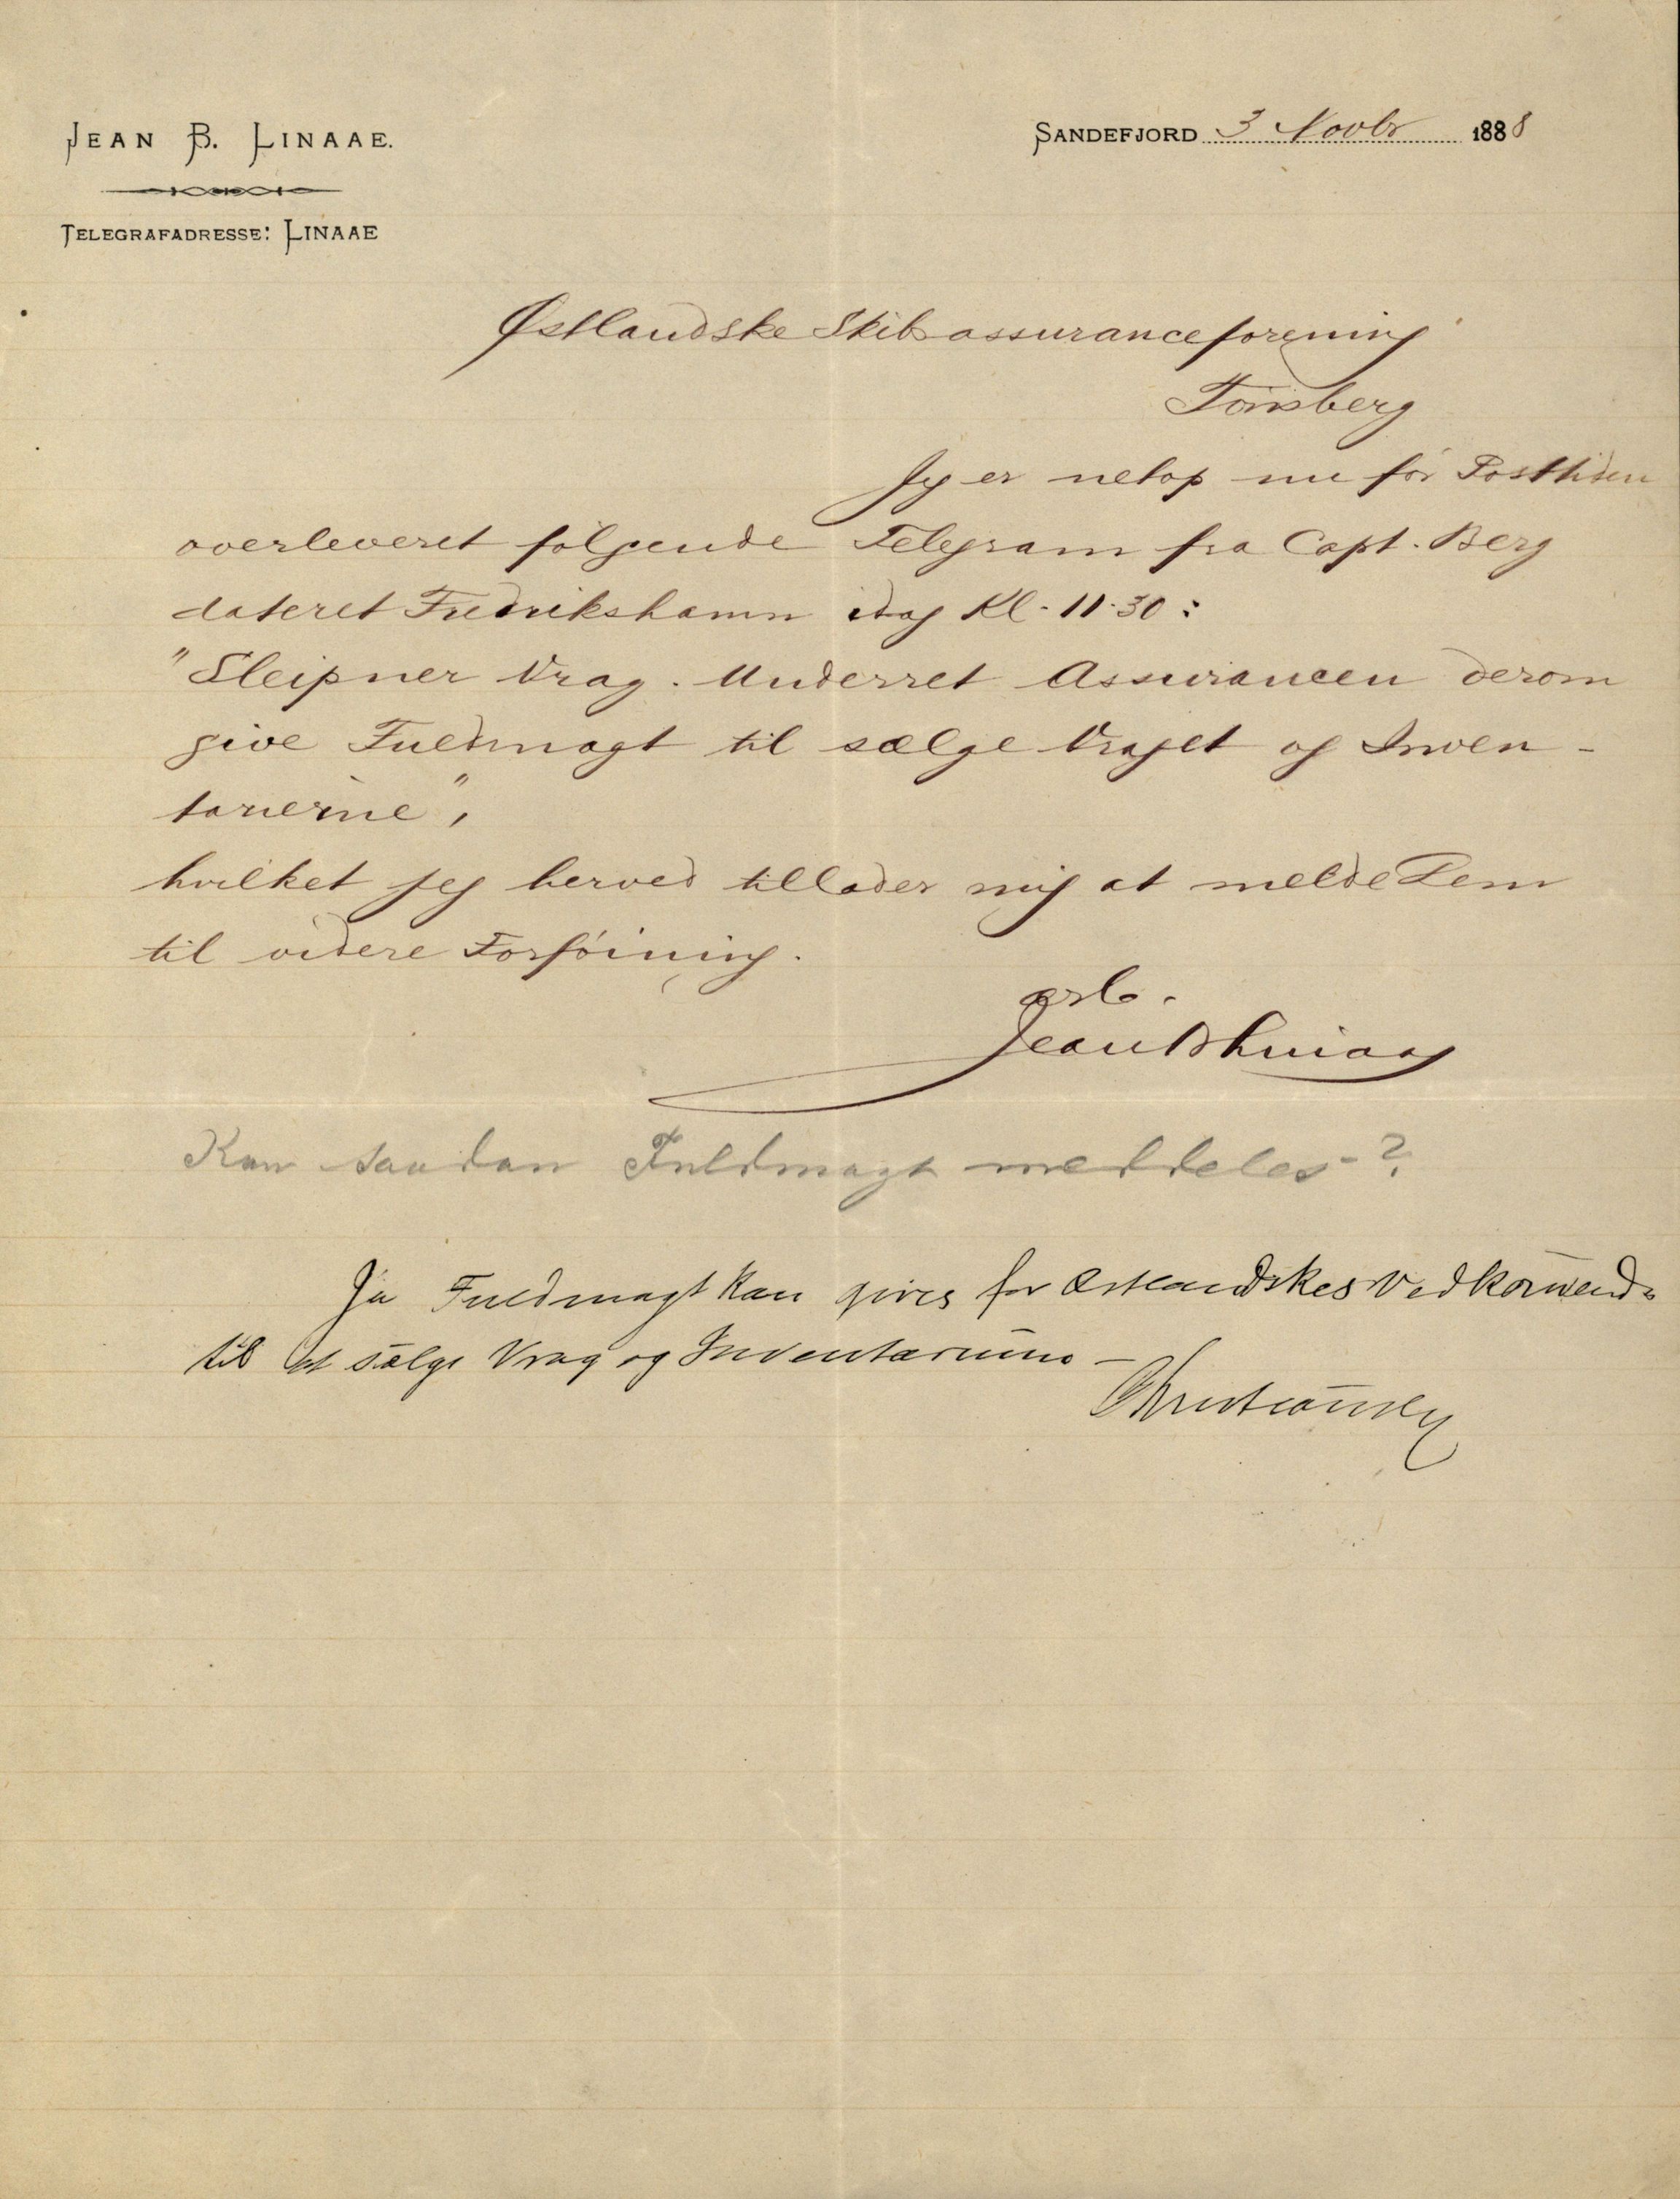 JEAN B. LINAAE.
TELEGRAFADRESSE: LINAAE
SANDEFJORD 3 Novbr 1888
Østlandske Skibsassuranceforening
Tönsberg
Jeg er netop nu før Posttiden
overleveret følgende Telegram fra Capt. Berg
dateret Fredrikshamn idag Kl. 11.30:
"Sleipner Vrag. Underret Assurancen derom
give Fuldmagt til sælge Vraget og Inven-
tarierne",
hvilket jeg herved tillader mig at melde Dem
til videre Forføining.
ærb.
Jean B Linaae
Kan saadan Fuldmagt meddeles-?
Ja Fuldmagt kan gives for Østlandskes Vedkommende
til at sælge Vrag og Inventarium -